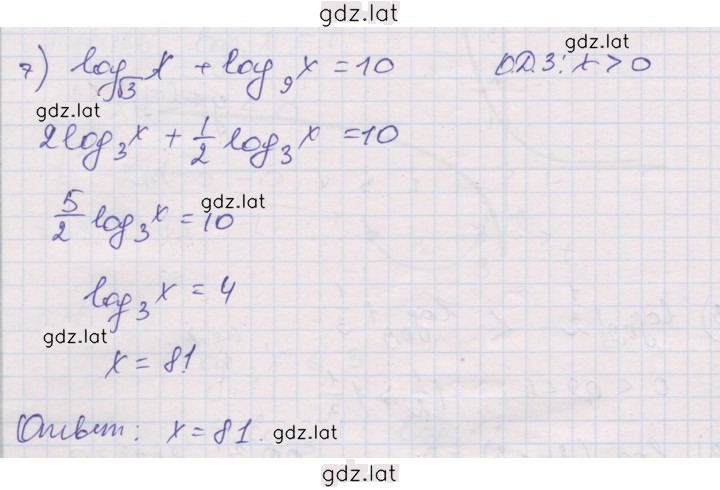 gdz.lat
7) log_√3 x + log_9 x = 10 О.Д.З: x > 0
gdz.lat
gdz.lat
2log_3 x + 1/2 log_3 x = 10
5/2 log_3 x = 10
gdz.lat
log_3 x = 4
gdz.lat
x = 81
Ответ: x = 81.
gdz.lat
gdz.lat